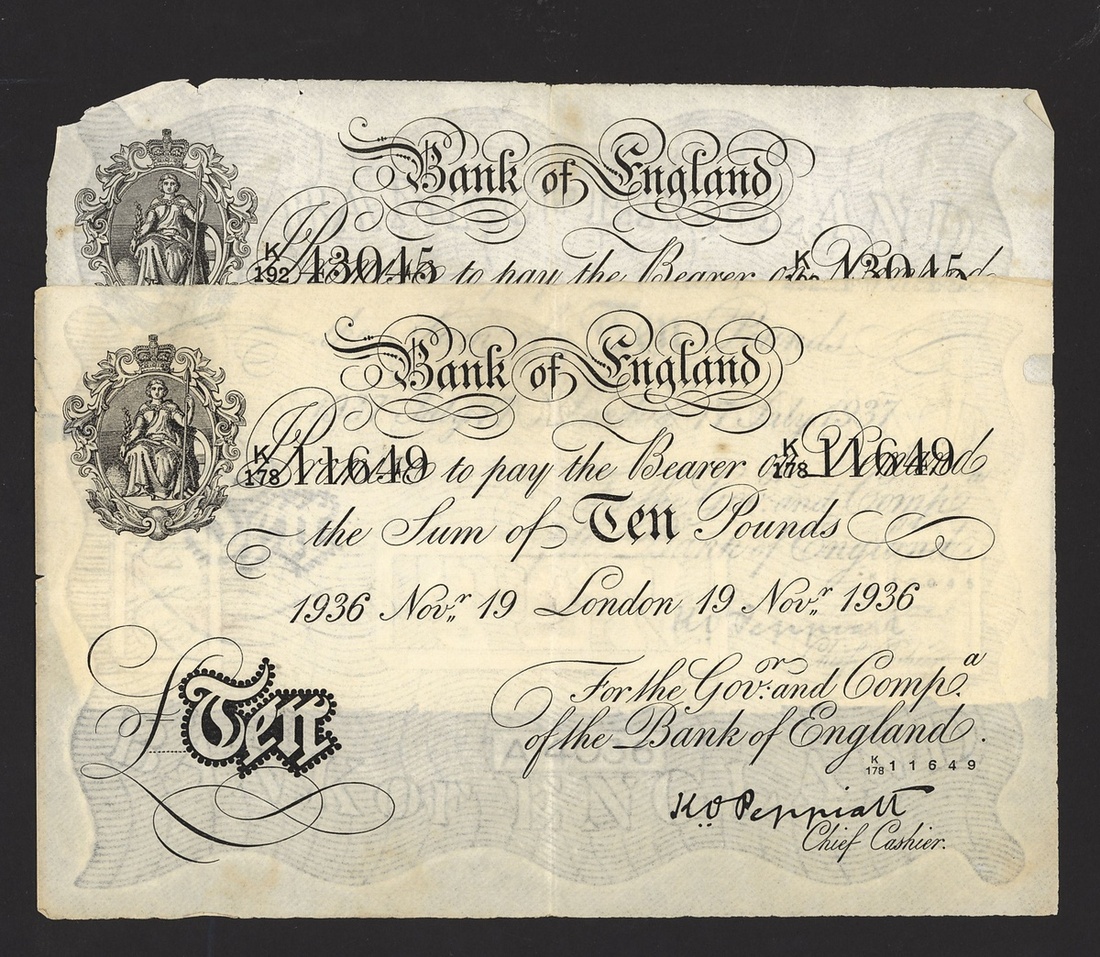 Bank of England
K
192 43045 to pay the Bearer on K 43045
Bank of England
K
178 11649 Promise to pay the Bearer on Demand K
178 11649
the Sum of Ten Pounds
1936 Nov.r 19 London 19 Nov.r 1936
£Ten
For the Gov.r and Comp.a
of the Bank of England.
K
178 11649
K.O. Peppiatt
Chief Cashier.